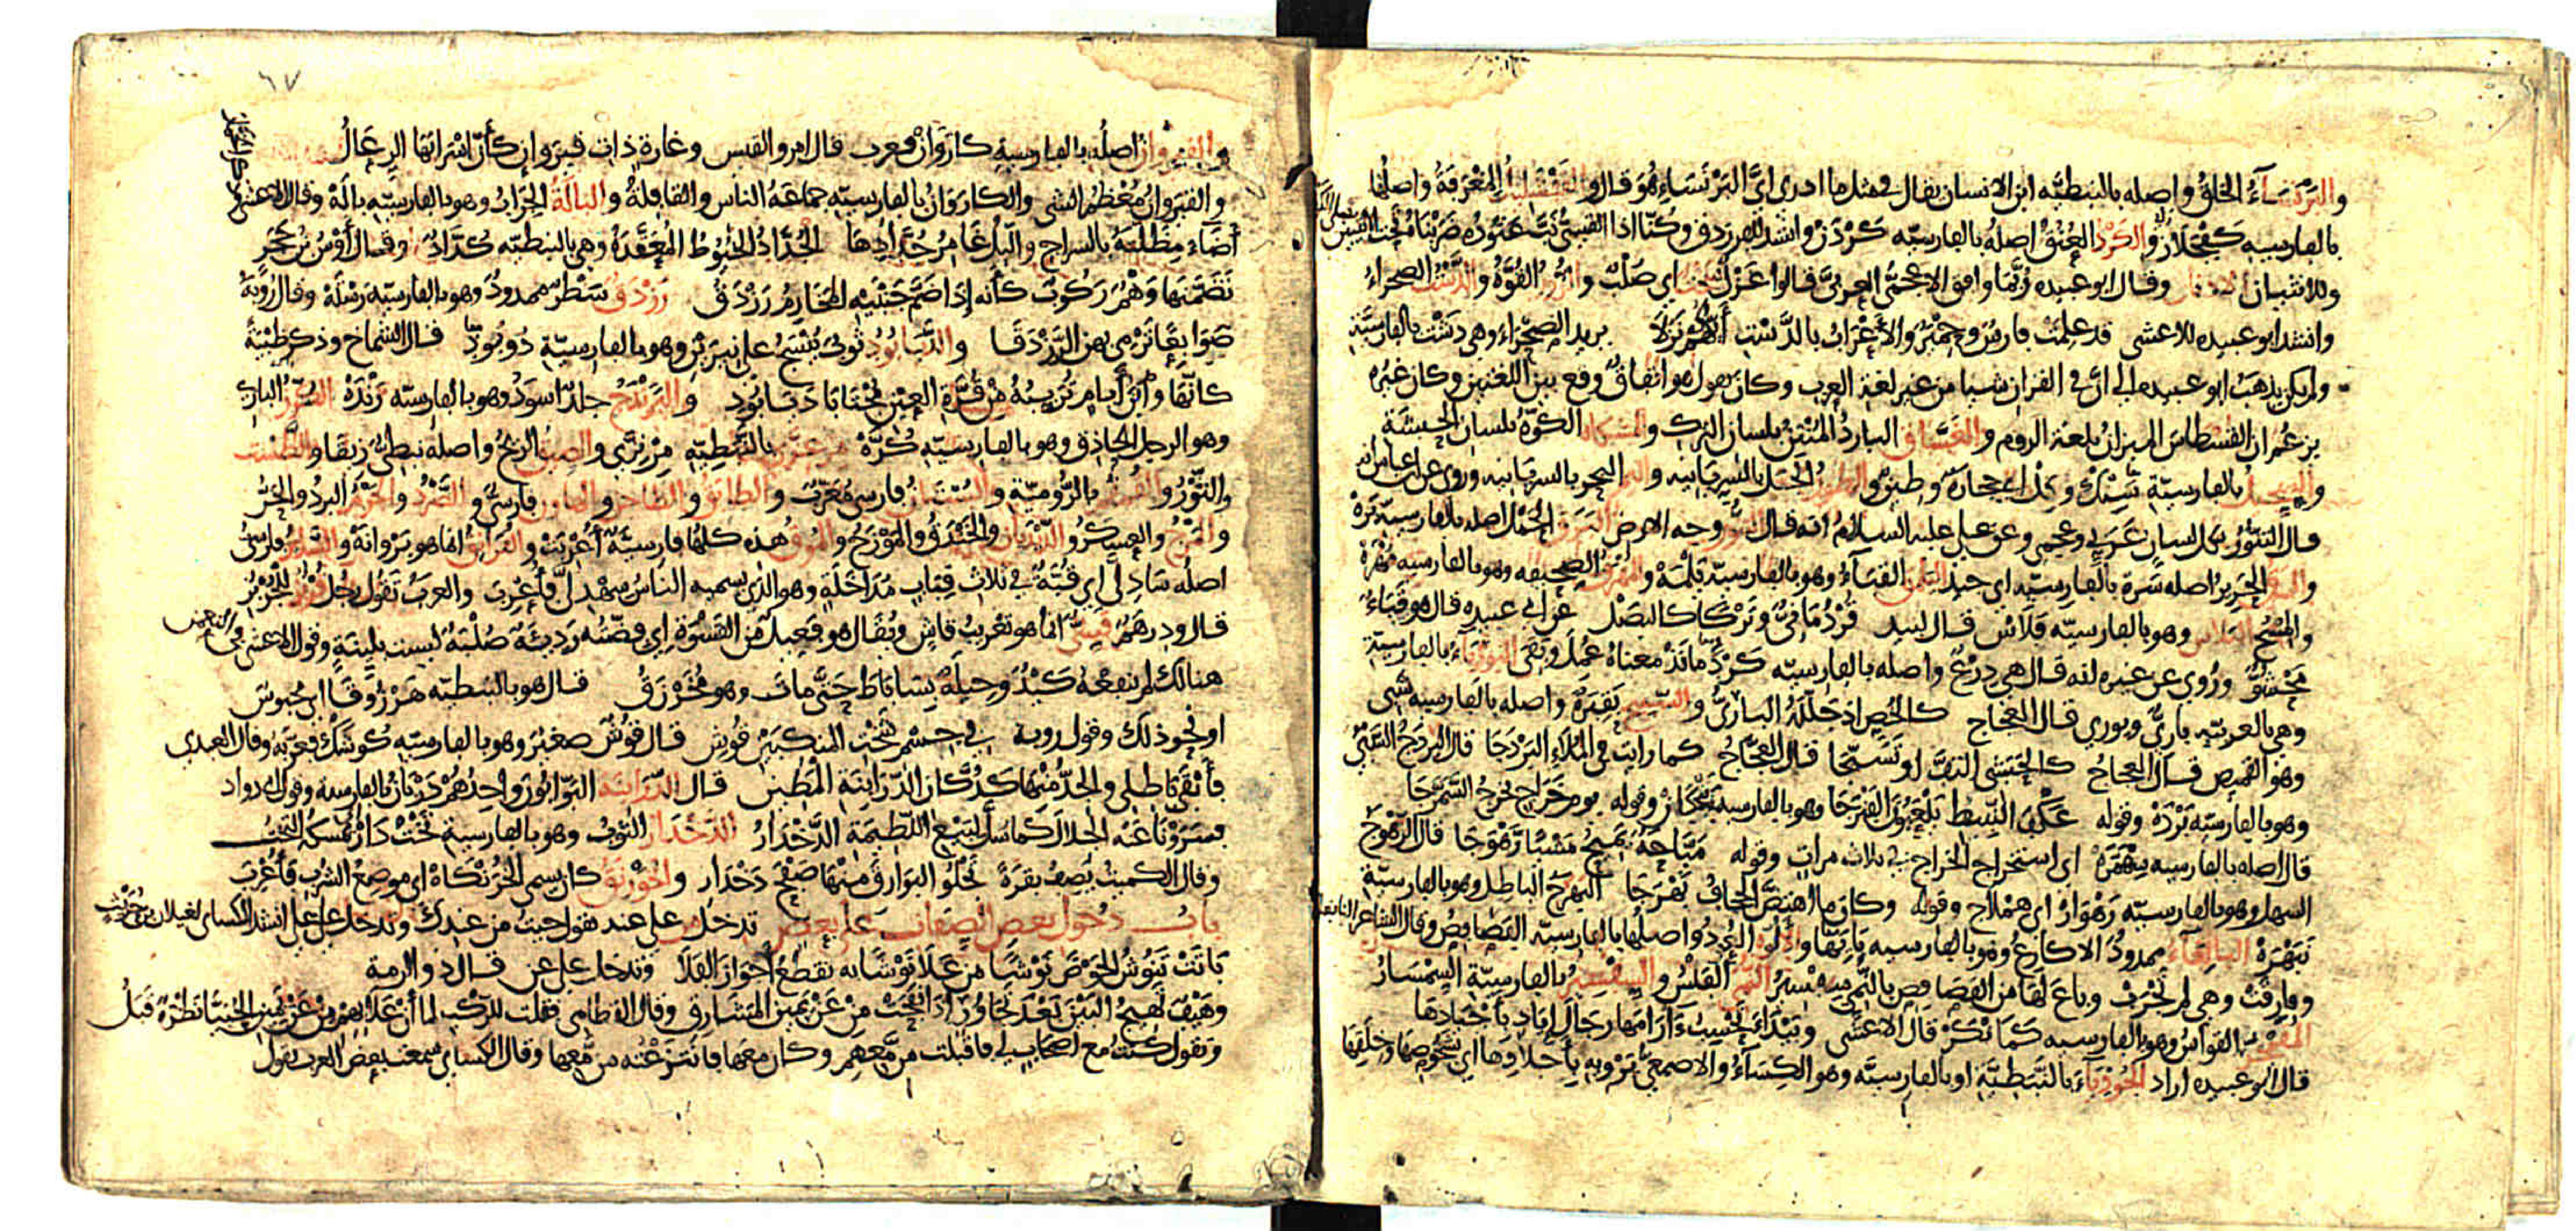 والبَرْنَسَاءُ الخلقُ واصله بالنبطيّه ابن الانسان يقال في مثل ما ادرى اىُّ البَرْنَسَاءِ هُوَ قال والقَفْشَلِيلُ المِغْرَفَةُ واصلها
بالفارسيه كَفْجَلاز والكَرْد العُنُقُ اصلهُ بالفارسيّه كَرْدَن وانشد للفرزدق وكُنّا اذا القيسىُّ نَبَّ عَتُودُه ضَرَبْنَاهُ تحت الانثيين على الكرد
وقال ابو عبيده رُبّما وافق الاعجمىُّ العربىَّ قالوا غَزْلٌ سَخْتٌ اى صُلْبٌ والزُّورُ القُوَّةُ والدَّشْتُ الصحراءُ
وانشد ابو عبيده للاعشى قد علِمَتْ فارسٌ وحِمْيَرُ والأعْرَابُ بالدَّشْتِ أيُّهُمْ نَزَلَا يريد الصَّحْراءَ وهى دَشْت بالفارسيَّةِ
ولم يكن يذهبُ ابو عبيده الى انّ فى القران شيا من غير لغة العرب وكان يقول هو اتفاقٌ وقع بين اللغتين وكان غيرُه
يزعُمُ ان القسطاسَ الميزانُ بلغة الروم والغَسَّاق الباردُ المُنْتِنُ بلسان الترك والمشكاة الكوّةُ بلسان الحبشَة
والسجيلُ بالفارسيّة سَنْك وكِل اى حجارةٌ وطين والطور الجبل بالسريانيه واليمّ البحر بالسريانيه وروى عن ابن عباس انه
قال التنّورُ بكل لسان عَرَبي وعجمى وعن على عليه السلام انه قال التنّور وجه الارض البَرَق الحَمَل اصله بالفارسيّة بَرَهْ
والسَرَقُ الحَرِير اصله سَرَهْ بالفارسيّه اى جيد اليَلْمَق القَبَاءُ وهو بالفارسيّة يَلْمَهْ والمُهْرَقُ الصحيفه وهو بالفارسيه مُهْرَهْ
والمِسْحُ البَلَاس وهو بالفارسيّه پَلَاس قال لبيد قُرْدُمَانِيًّا وَتَرْكًا كالبَصَلْ عن ابى عبيده قال هو قَبَاءٌ
مَحْشُوٌّ ورُوى عن غيره انه قال هى دِرْعٌ واصله بالفارسيّه كَرْدُمَانَذْ معناهُ عُمِلَ وبَقِىَ البُورِيَاءُ بالفارسيّة
وهى بالعربيّه بارىٌّ وبورى قال العجاج كالخُصِ اذ جَلَّلَهُ البارىُّ والسَّبيج بَقِيرَةٌ واصله بالفارسيه شبى
وهو القميص قال العجاج كالحَبَشىِّ التفَّ او تَسَبَّجَا قال العجاج كما رايت فى المُلَاءِ البَرْدَجَا قال البَرْدَجُ السَّبْىُ
وهو بالفارسيّه بَرْدَهْ وقوله عَكْفَ النَّبِيطِ يَلْعَبُونَ الفَنْزَجَا وهو بالفارسيه بَنْجَكان وقوله يومَ خَرَاجٍ تُخْرِجُ السَّمَرَّجَا
قال اصله بالفارسيه سِهْمَرَّه اى استخراج الخراج فى ثلاث مراتٍ وقوله مَيَّاحَةً تميحُ مَشْيًا رَهْوَجَا قال الرَّهْوَجُ
السهل وهو بالفارسيّه رَهْوَارْ اى هِمْلَاج وقوله وكان ما اهتضَّ الجحافُ بَهْرَجَا البَهْرَجُ الباطِل وهو بالفارسيّة
نَبَهْرَهْ البالِغَاءُ ممدودٌ الاكارعُ وهو بالفارسيه بايَهَا واصلُها بالفارسيّه الفَصَافِصُ وقال الشاعر النابغة
وقارفَتْ وهى لم تَجْرَبْ وباع لَهَا من الفصافِص بالنُّمِّىِّ سِفْسِيرُ النُّمِّىُّ الفَلْسُ والسِفْسِيرُ بالفارسيّةِ السِّمْسَارُ
المُقَمْجِرُ القواسُ وهو بالفارسيه كَمَانْكَرْ قال الاعشى وبَيْدَاءَ تحسِبُ ءَارَامَها رِجَالَ إيَادٍ بأجْيَادِهَا
قال ابو عبيده اراد الجُوذِيَاءَ بالنَّبَطِيَّةِ او بالفارسيَّه وهو الكِسَاءُ والاصمعىُّ يَرْويه بأجلادِها اى شُخُوصِها وخِلَقِها
والقيروانُ اصلُه بالفارسية كارَوَانْ فعرب قال امرو القيس وغارةٍ ذاتِ قيروانٍ كأنَّ اسْرَابَهَا الرِعَالُ
والقيروانُ مُعْظَمُ الشى والكارَوَانُ بالفارسيّه جماعةُ الناسِ والقافلةُ والبالَةُ الجَرَابُ وهو بالفارسيّه بالَهْ وقال الاعشى
أضَاءَ مِظَلَّتَهُ بالسراجِ والليلُ غَامِرُ جُدَّادِهَا الجُدَّادُ الخيُوطُ المُعَقَّدَةُ وهى بالنبطيّه كُدَّاد وقال أوْسُ بنُ حَجَرٍ
تَضَمَّنَهَا وَهْمٌ رَكُوبٌ كأنه إذَا ضَمَّ جَنْبَيْهِ المَخَارِمُ رَزْدَقُ رَزْدَق سَطْرٌ ممدودٌ وهو بالفارسيّه رَسْتَهْ وقال رُوبَةُ
ضَوَابِعًا تَرْمِى بِهِنَّ الرَّزْدَقَا والدَّيَابُودُ ثوبٌ يُنْسَجُ على نيرَيْن وهو بالفارسيّة دُوبُود قال الشماخ وذكر ظبْيَةً
كانّها وابْنَ أيامٍ تُرَبِّبُهُ مِنْ قُرَّةِ العَيْنِ مُجْتَابَا دَيَابُودِ واليَرَنْدَجُ جلدٌ اسودُ وهو بالفارسيّه رَنْدَهْ القُرَّزُ البازى
وهو الرجل الحاذق وهو بالفارسيّه كُرَّهْ مِرْعِزَّى بالنَّبَطيّه مِرِيزَّى والصِيقُ الريحُ واصله نبطىٌّ زيقا والطَّسْت
والتَّوْرُ والقُمْقُم بالرُّوميّةِ والبُسْتَان فارسى مُعَرَّب والطابَقُ والطاجن والهاون فارسىٌّ والصَّرْدُ والجَرْمُ البردُ والحَرّ
والمَرْجُ والعسكرُ والدَّيْدَبان والخَنْدَقُ والمَوْزَجُ والمُوقُ هذه كلها فارسيَّةٌ أُعْرِبَتْ والفُرَانِقُ انما هو بَرْوانَهْ والسَّدِيرُ فارسىٌّ
اصلُه سَادِلّى اى قُبَّةٌ فى ثلاثِ قِبَابٍ مُدَاخَلَةٍ وهو الذى يسميه الناسُ سِهْدِلىّ فأُعْرِبَ والعربُ تَقُولُ رجُل قُرْبُزٌ للجُرْبُزِ
قال ودرهَمٌ قَسِىٌّ انما هو تعريبُ قاشٍ ويُقَالُ هو فَعِيلٌ من القَسْوَةِ اى فضّتُه رَدِيئَةٌ صُلْبَةٌ ليست بليّنةٍ وقول الاعشى فى النعمن
هنالك لم ينفعه كَيْدٌ وحيلةٌ بسَاباطَ حتَّى ماتَ وهو مُحَرْزَقُ قال هو بالنبطيّه هَرْزُوقَا اى محبوسٌ
او نحو ذلك وقول روبة فى جِسْمِ شَخْتِ المنكبَيْنِ قُوشِ قال قوُشٌ صغيرٌ وهو بالفارسيّه كوشَك فعرّبه وقال العبدى
فأبْقَى باطِلِى والجِدُّ مِنْهَا كَدُكَّانِ الدَّرَابِنَةِ المَطِينِ قال الدَّرَابِنَة البَوّابُونَ واحِدُهُمْ دَرْبَانٌ بالفارسية وقول ابى دواد
فَسَرَوْنَا عَنْهُ الجلالَ كما سُلَّ لبَيْعِ اللَّطِيمَةِ الدَّخْدَارُ الدَّخْدَار الثوبُ وهو بالفارسية تَخْتْ دَارْ يُمْسِكه التخت
وقال الكميت يَصِفُ بقرَةً تَجْلُو البَوَارِقُ مِنْهَا صَفْحَ دَخْدَارِ والخَوَرْنَقُ كان يسمى الخُرَنْكَاهْ اى موضِعُ الشرب فأُعْرِبَ
بابُ دخول بعض الصفات على بعض تدخل من على عند تقول جيتُ من عندِك وتدخل على على انشد الكساى لغيلان بن حُرَيْث
بَاتَتْ تَنُوشُ الحَوْضَ نَوْشًا مِن عَلَا نَوْشًا بهِ تقطعُ أجْوَازَ الفَلَا وتدخل على عن قال ذو الرمة
وهَيْفٌ تَهِيجُ البَيْنَ بَعْدَ تَجَاوُرٍ اذَا نَفَحَتْ مِنْ عَنْ يمينِ المَشَارِقِ وقال القطامى فقلت للركْبِ لمّا أنْ عَلَا بِهِمُ مِنْ عَنْ يمينِ الحُبَيَّا نَظْرَةٌ قَبَلُ
وتقول كُنْتُ مع اصحابٍ لى فاقبلت من مَعَهِم وكان معها فانْتَزَعْتُه من مَعِها وقال الكساى سمعت بعض العرب يقول